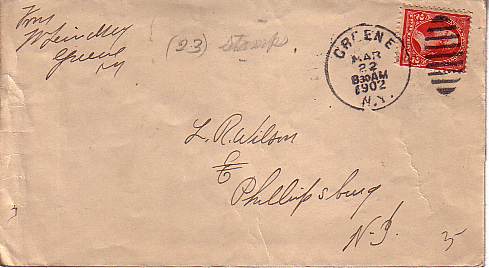 From
Greene
NY
(23) Stamp
GREENE
MAR
22
830AM
1902
N.Y.
L. R. Wilson
Phillipsburg
N.J.
5